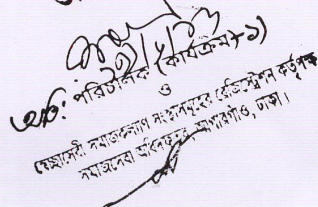 অতি: পরিচালক (কার্যক্রম-১)
ও
স্বেচ্ছাসেবী সমাজকল্যাণ সংস্থাসমূহের রেজিস্ট্রেশন কর্তৃপক্ষ
সমাজসেবা অধিদফতর, আগারগাঁও, ঢাকা।